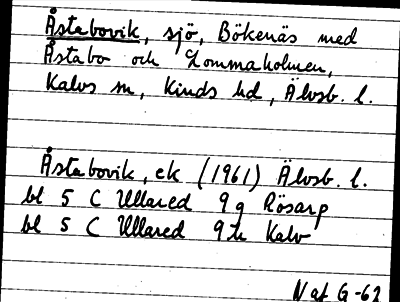 Åstabovik, sjö, Bökenäs med
Åstabo och Lommaholmen,
Kalvs sn, Kinds hd, Älvsb. l.
Åstabovik, ek (1961) Älvsb. l.
bl 5 C Ullared 9 g Rösarp
bl 5 C Ullared 9 h Kalv
N af G -62